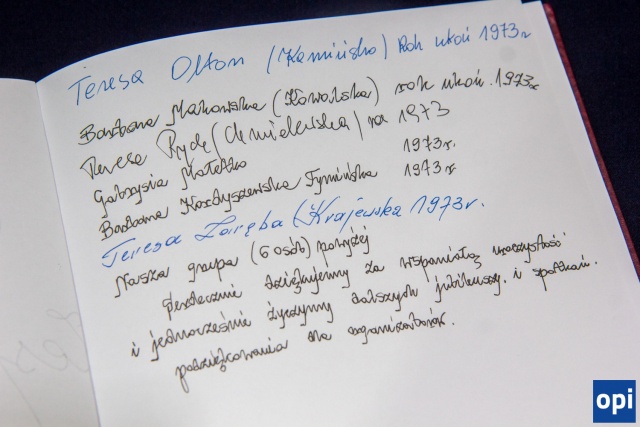 Teresa Olton (Kamińska) Rok ukoń 1973r
Barbara Makowska (Kowalska) rok ukoń. 1973r
Teresa Ryde (Chmielewska) ra 1973
Gabrysia Matełko 1973r.
Barbara Kordyszewska Tymińska 1973r.
Teresa Zaręba (Krajewska 1973r.
Nasza grupa (6 osób) powyżej
serdecznie dziękujemy za wspaniałą uroczystość
i jednocześnie życzymy dalszych jubileuszy. i spotkań.
podziękowania dla organizatorów.
opi